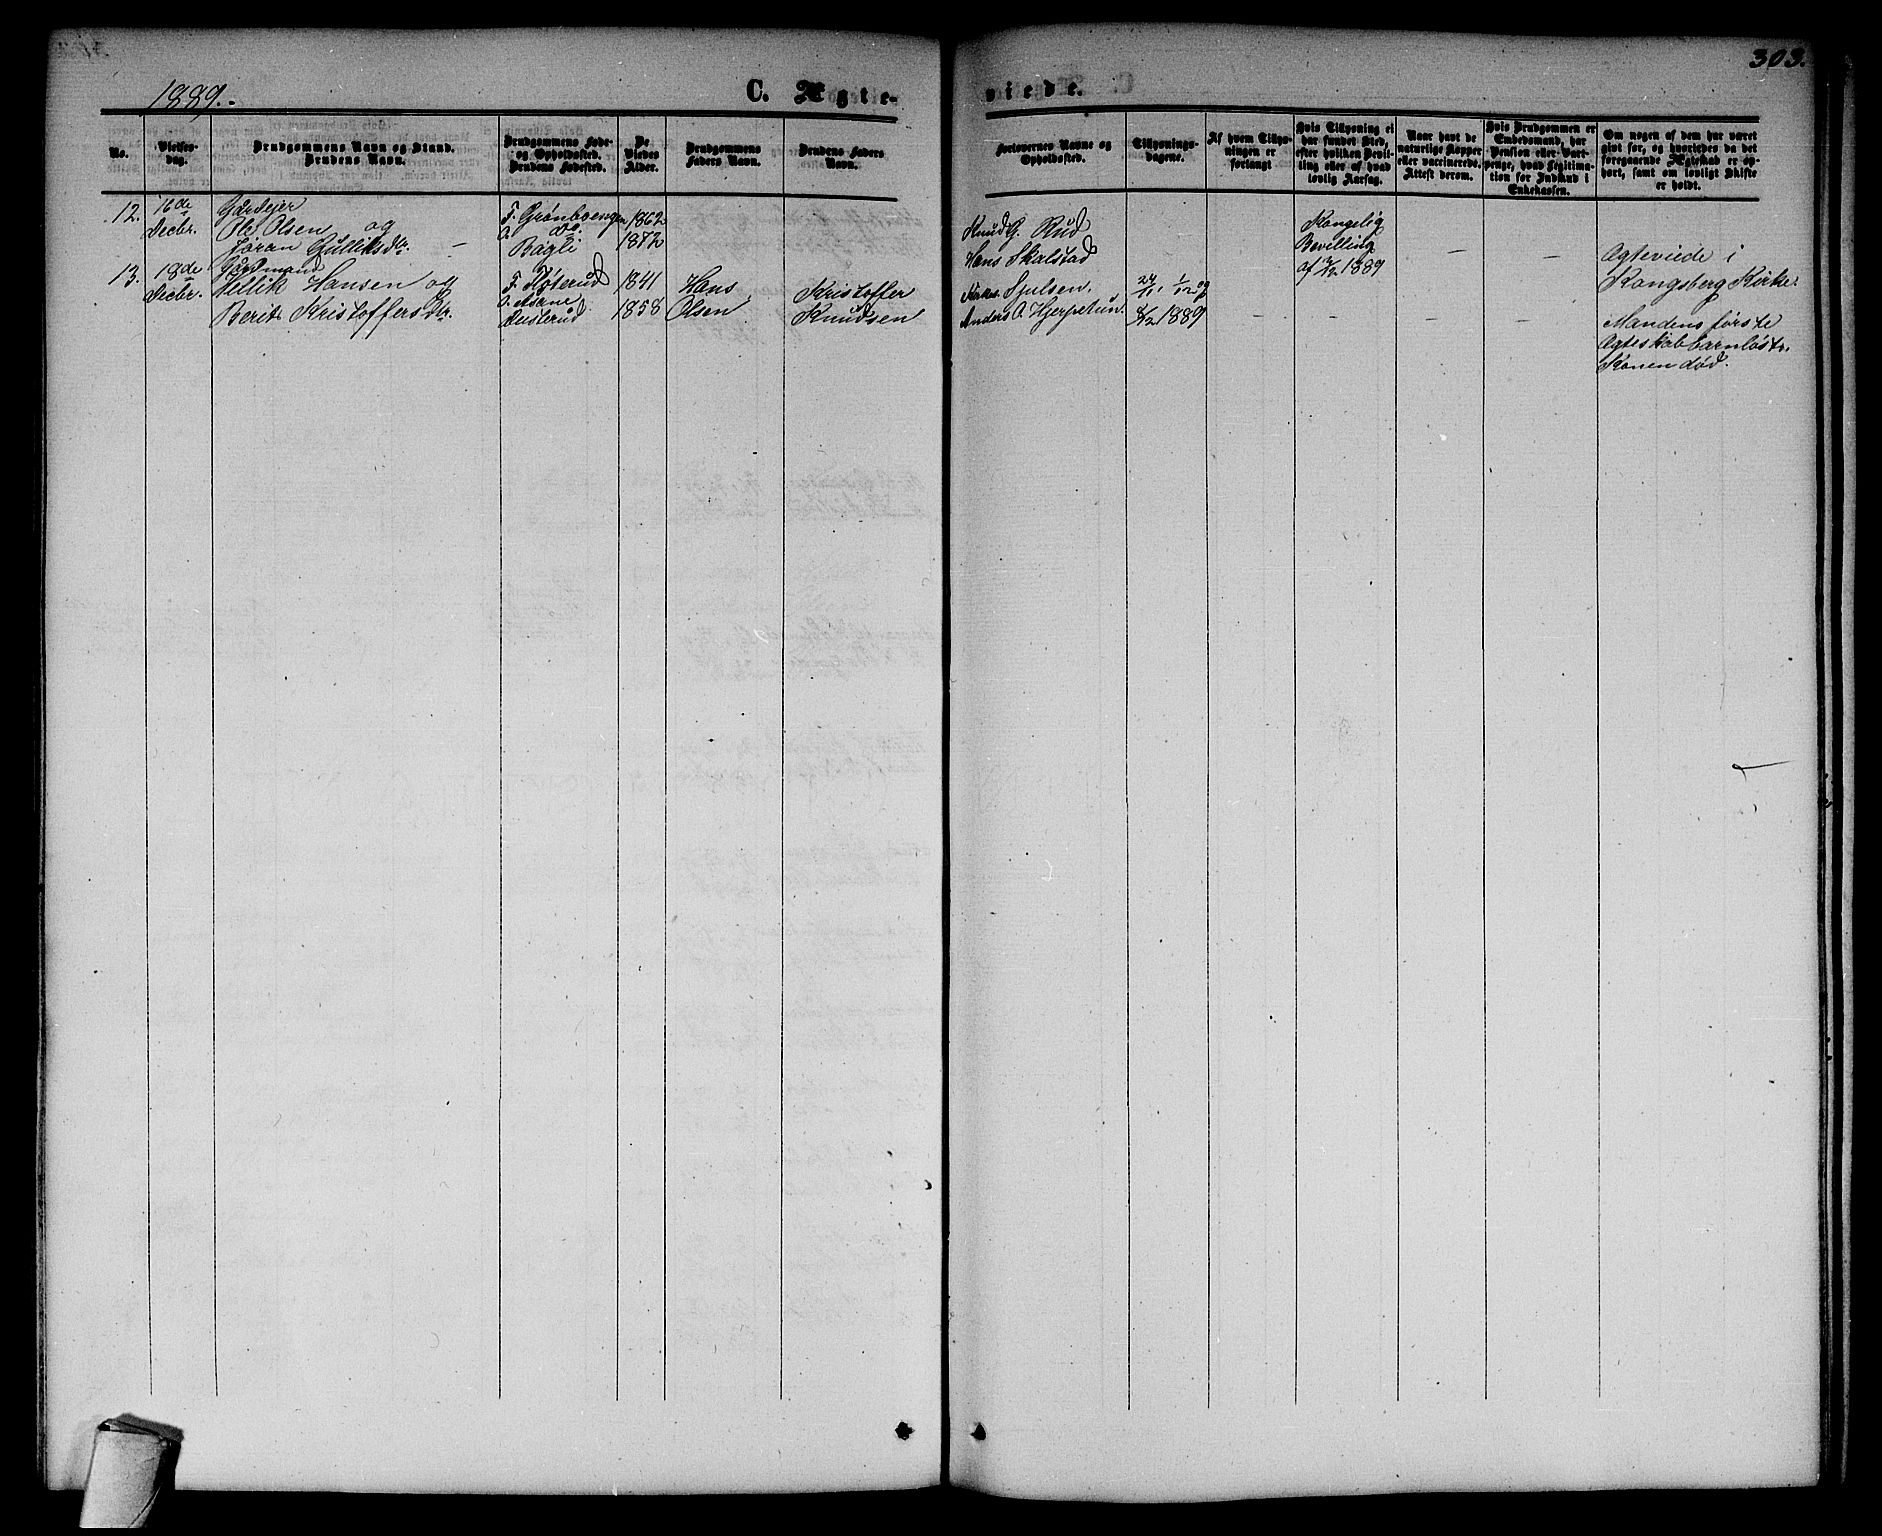 303.
1889.
C. Ægte-
viede.
No.
Vielses-
dag.
Brudgommens Navn og Stand.
Brudens Navn.
Brudgommens Føde-
og Opholdssted.
Brudens Fødested.
De
Viedes
Alder.
Brudgommens
Faders Navn.
Brudens Faders
Navn.
Forlovernes Navne og
Opholdssted.
Tillysnings-
dagene.
Af hvem Tillys-
ningen er
forlangt
Hvis Tillysning ei
har fundet Sted,
efter hvilken Bevil-
ling eller af hvad
lovlig Aarsag.
Naar havt de
naturlige Kopper
eller vaccinerede.
Attest derom.
Hvis Brudgommen er
Embedsmand, har
Pension eller Vart-
penge, hvad Legitima-
tion for Indskud i
Enkekassen.
Om nogen af dem har været
gift før, og hvorledes da det
foregaaende Ægteskab er op-
hørt, samt om lovligt Skifte
er holdt.
12.
16de
Decbr.
Gaardejer
Ole Olsen og
Jøran Gulliksdtr. –
F. Grønboengen
O. do.
Bagli
1862
1872
Knud G. Rud
Hans Skalstad
Kongelig
Bevilling
af 12/12 1889
–
–
Ægteviede i
Kongsberg Kirke.
13.
18de
Decbr.
Hellik Hansen og
Berit Kristoffersdtr.
F. Tøterud
O. Aasne
Dusterud
1841
1858
Hans
Olsen
Kristoffer
Knudsen
Kirkes. Sjulsen.
Anders O. Hjerpetun.
24/11, 1/12 og
8/12 1889
–
–
–
–
Mandens første
Ægteskab barnløst.
Konen død.